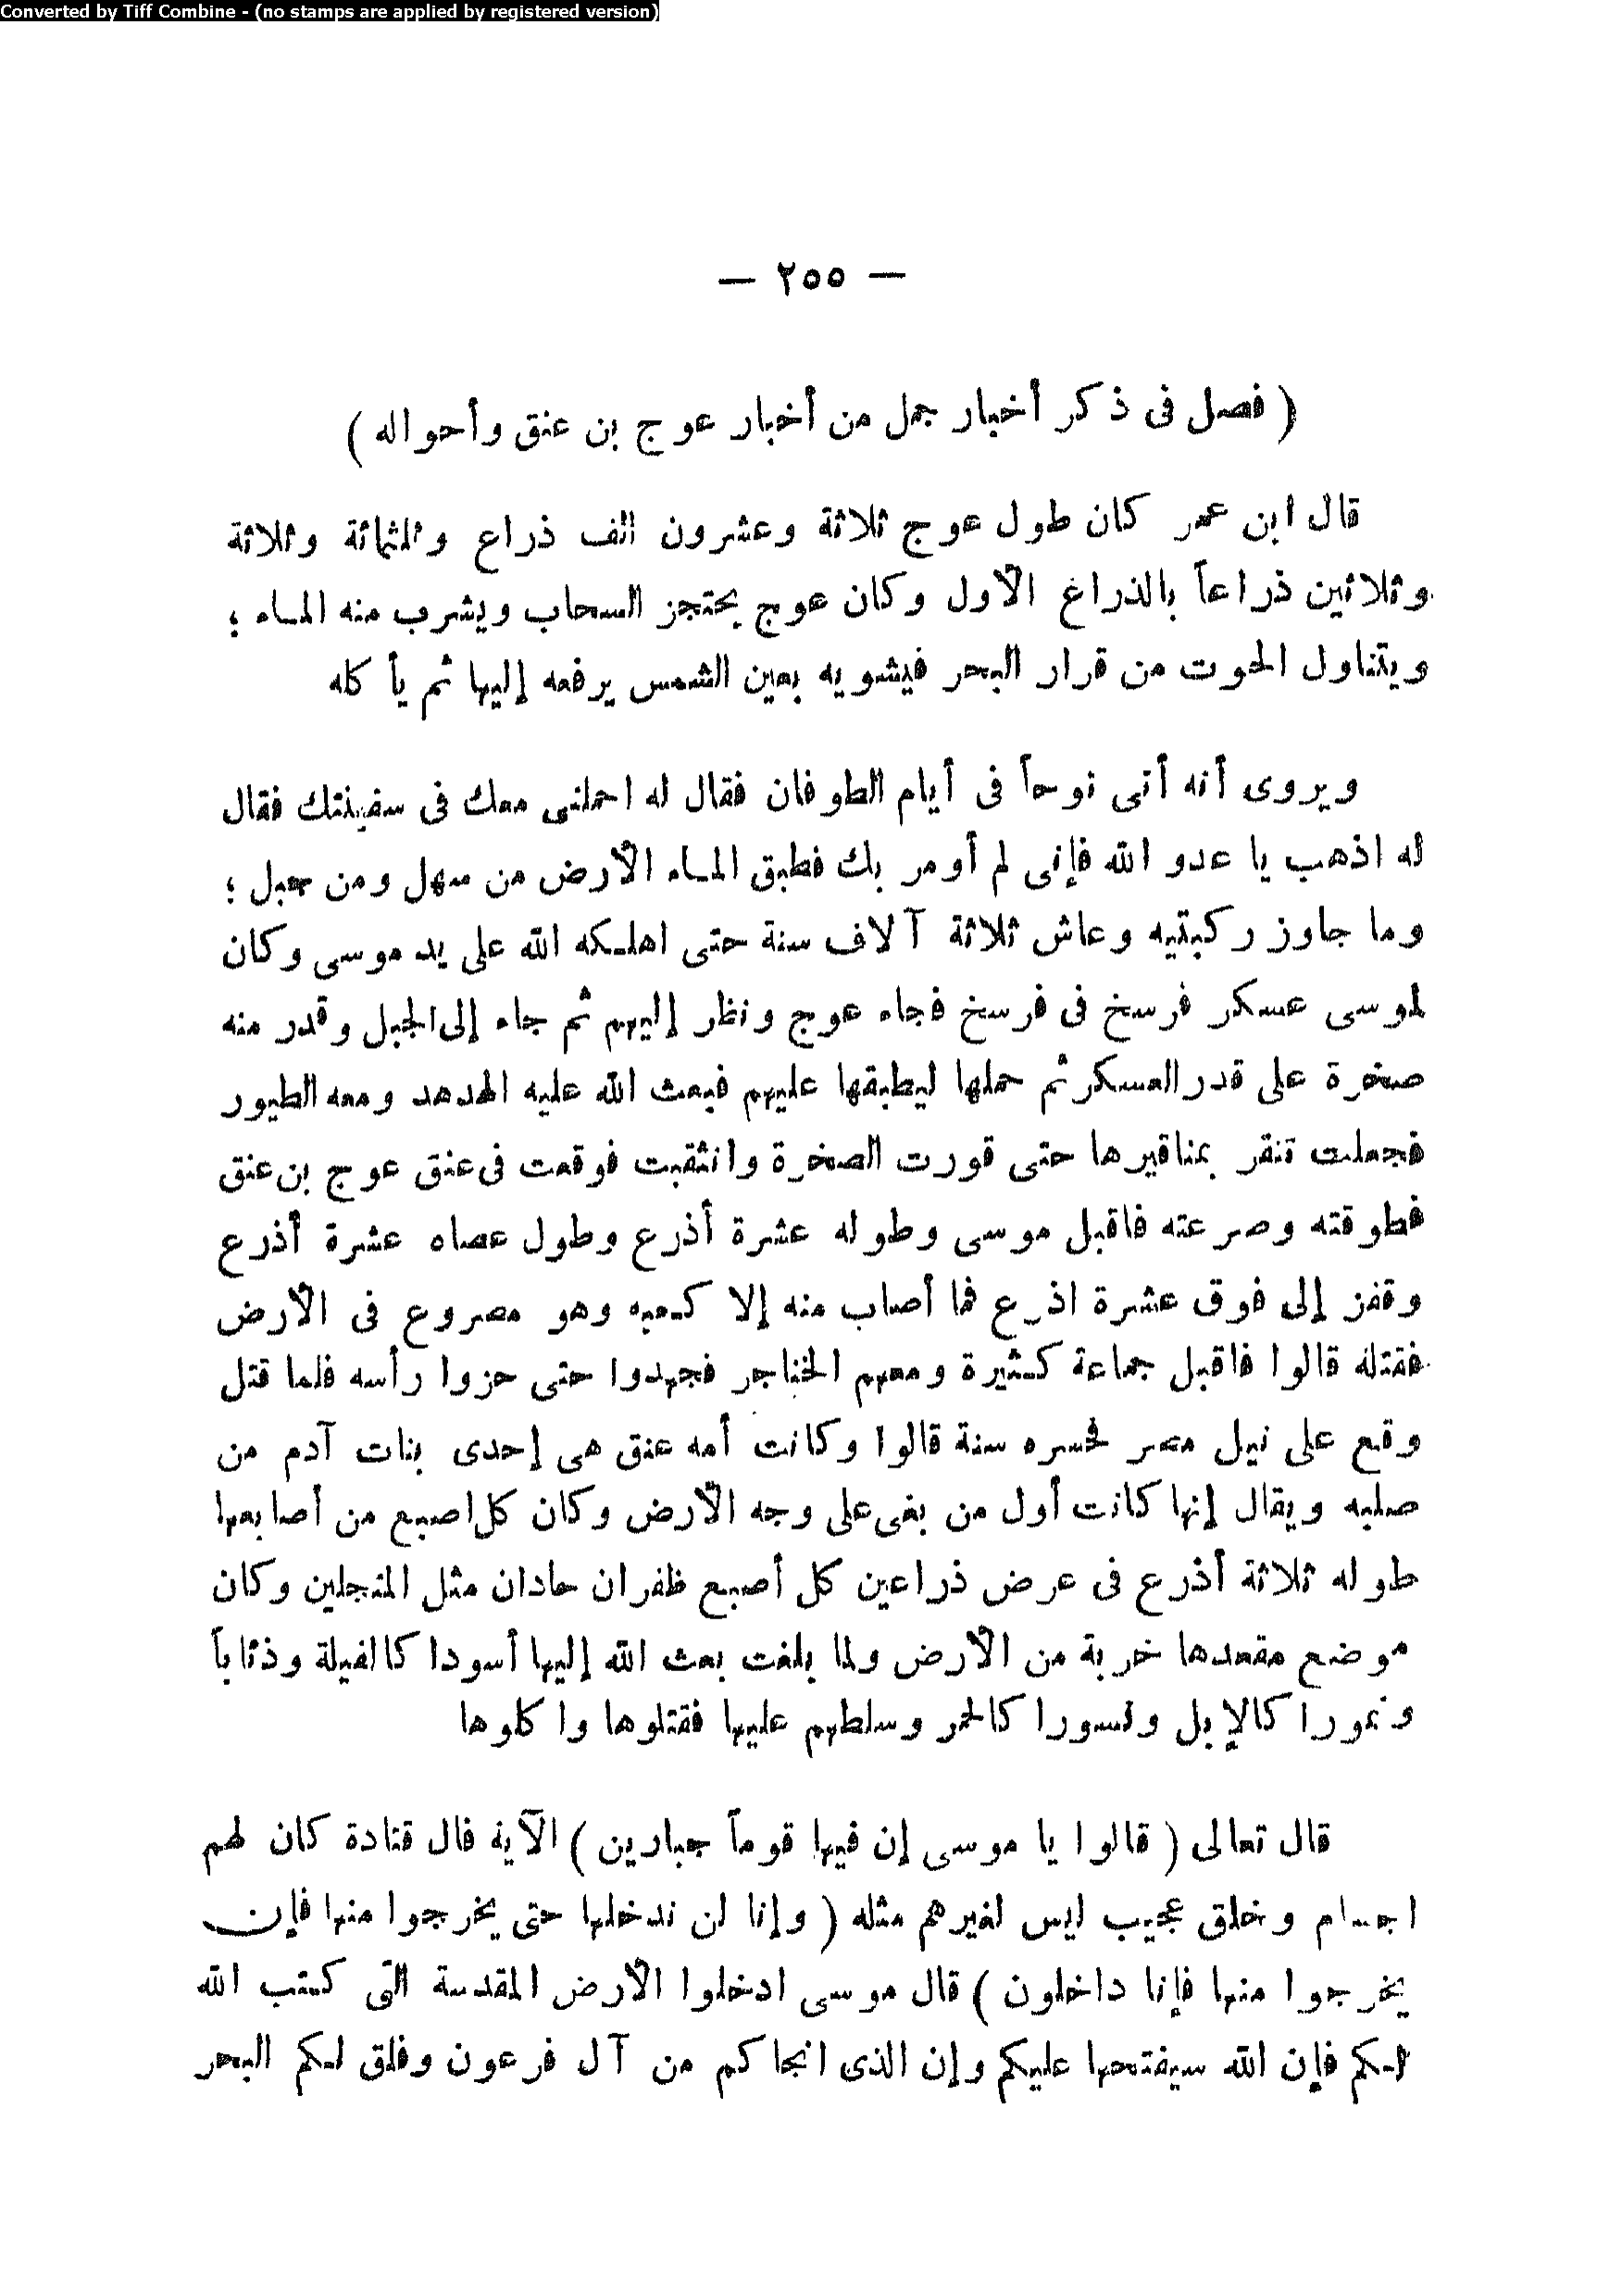 Converted by Tiff Combine - (no stamps are applied by registered version)
— ٢٥٥ —
( فصل فى ذكر أخبار جمل من أخبار عوج بن عنق وأحواله )
قال ابن عمر كان طول عوج ثلاثة وعشرون الف ذراع وثلثمائة وثلاثة
وثلاثين ذراعاً بالذراغ الأول وكان عوج يحتجز السحاب ويشرب منه الماء ؛
ويتناول الحوت من قرار البحر فيشويه بعين الشمس يرفعه إليها ثم يأكله
ويروى أنه أتى نوحاً فى أيام الطوفان فقال له احملنى معك فى سفينتك فقال
له اذهب يا عدو الله فإنى لم أومر بك فطبق الماء الأرض من سهل ومن جبل ؛
وما جاوز ركبتيه وعاش ثلاثة آلاف سنة حتى اهلكه الله على يد موسى وكان
لموسى عسكر فرسخ فى فرسخ فجاء عوج ونظر إليهم ثم جاء إلى الجبل وقدر منه
صخرة على قدر العسكر ثم حملها ليطبقها عليهم فبعث الله عليه الهدهد ومعه الطيور
فجعلت تنقر بمناقيرها حتى قورت الصخرة وانثقبت فوقعت فى عنق عوج بن عنق
فطوقته وصرعته فاقبل موسى وطوله عشرة أذرع وطول عصاه عشرة أذرع
وقفز إلى فوق عشرة اذرع فما أصاب منه إلا كعبه وهو مصروع فى الأرض
فقتله قالوا فاقبل جماعة كثيرة ومعهم الخناجر فجهدوا حتى حزوا رأسه فلما قتل
وقع على نيل مصر فحسره سنة قالوا وكانت أمه عنق هى إحدى بنات آدم من
صلبه ويقال إنها كانت أول من بغى على وجه الأرض وكان كل اصبع من أصابعها
طوله ثلاثة أذرع فى عرض ذراعين كل أصبع ظفران حادان مثل المنجلين وكان
موضع مقعدها خربة من الأرض ولما بلغت بعث الله إليها أسودا كالفيلة وذئاباً
ونمورا كالإبل ونسورا كالحمر وسلطهم عليها فقتلوها واكلوها
قال تعالى ( قالوا يا موسى إن فيها قوماً جبارين ) الآية قال قتادة كان لهم
اجسام وخلق عجيب ليس لغيرهم مثله ( وإنا لن ندخلها حتى يخرجوا منها فإن
يخرجوا منها فإنا داخلون ) قال موسى ادخلوا الأرض المقدسة التى كتب الله
لكم فإن الله سيفتحها عليكم وإن الذى انجاكم من آل فرعون وفلق لكم البحر